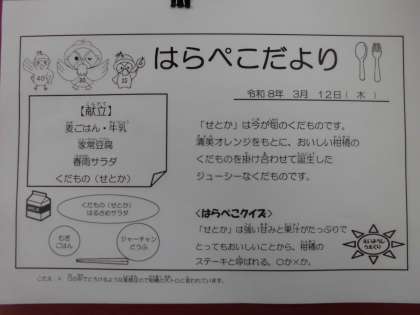 はらぺこだより
令和8年 3月 12日(木)
【献立】
麦ごはん・牛乳
家常豆腐
春雨サラダ
くだもの(せとか)
「せとか」は今が旬のくだものです。
清美オレンジをもとに、おいしい柑橘の
くだものを掛け合わせて誕生した
ジューシーなくだものです。
くだもの(せとか)
はるさめサラダ
むぎ
ごはん
ジャーチャン
どうふ
<はらぺこクイズ>
「せとか」は強い甘みと果汁がたっぷりで
とってもおいしいことから、柑橘の
ステーキと呼ばれる。○か×か。